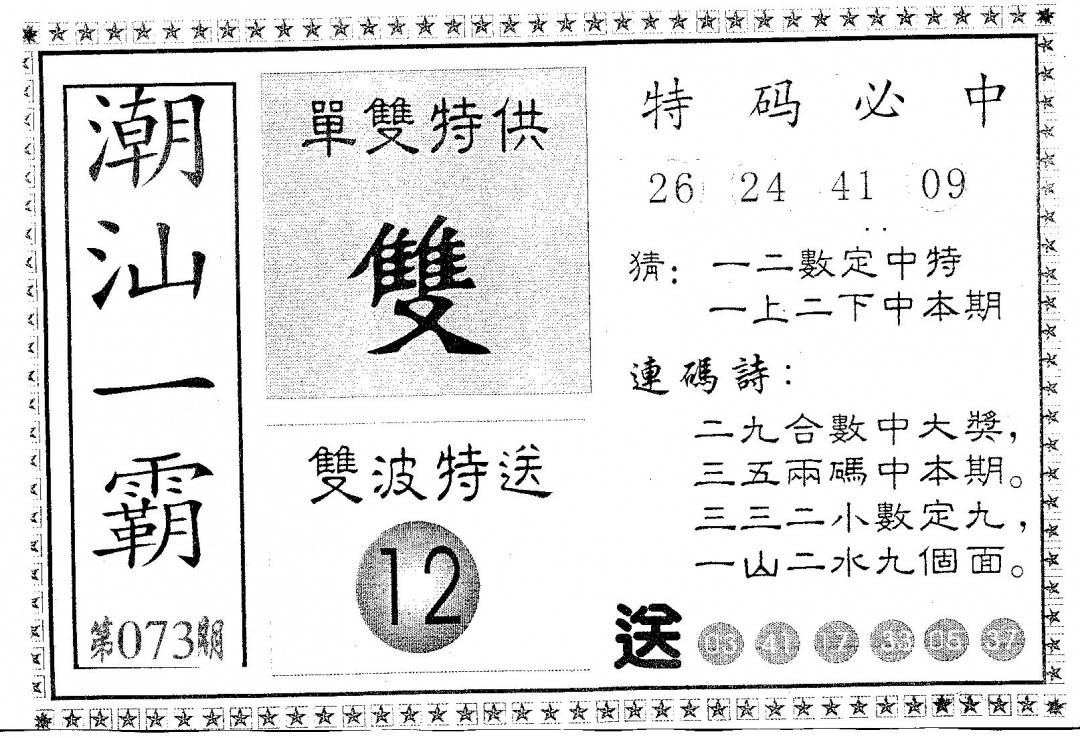 潮汕一霸
第073期
單雙特供
雙
雙波特送
12
特码必中
26 24 41 09
猜：一二數定中特
一上二下中本期
連碼詩：
二九合數中大獎，
三五兩碼中本期。
三三二小數定九，
一山二水九個面。
送 03 41 17 33 05 37